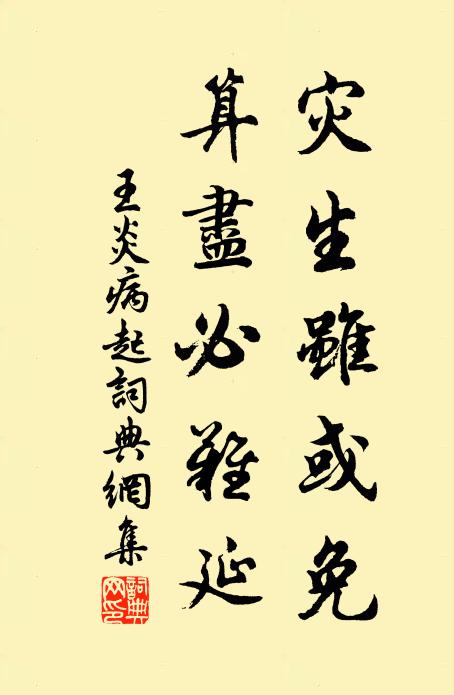 灾生雖或免
算盡必難延
王炎病起詞典網集
詞典網印